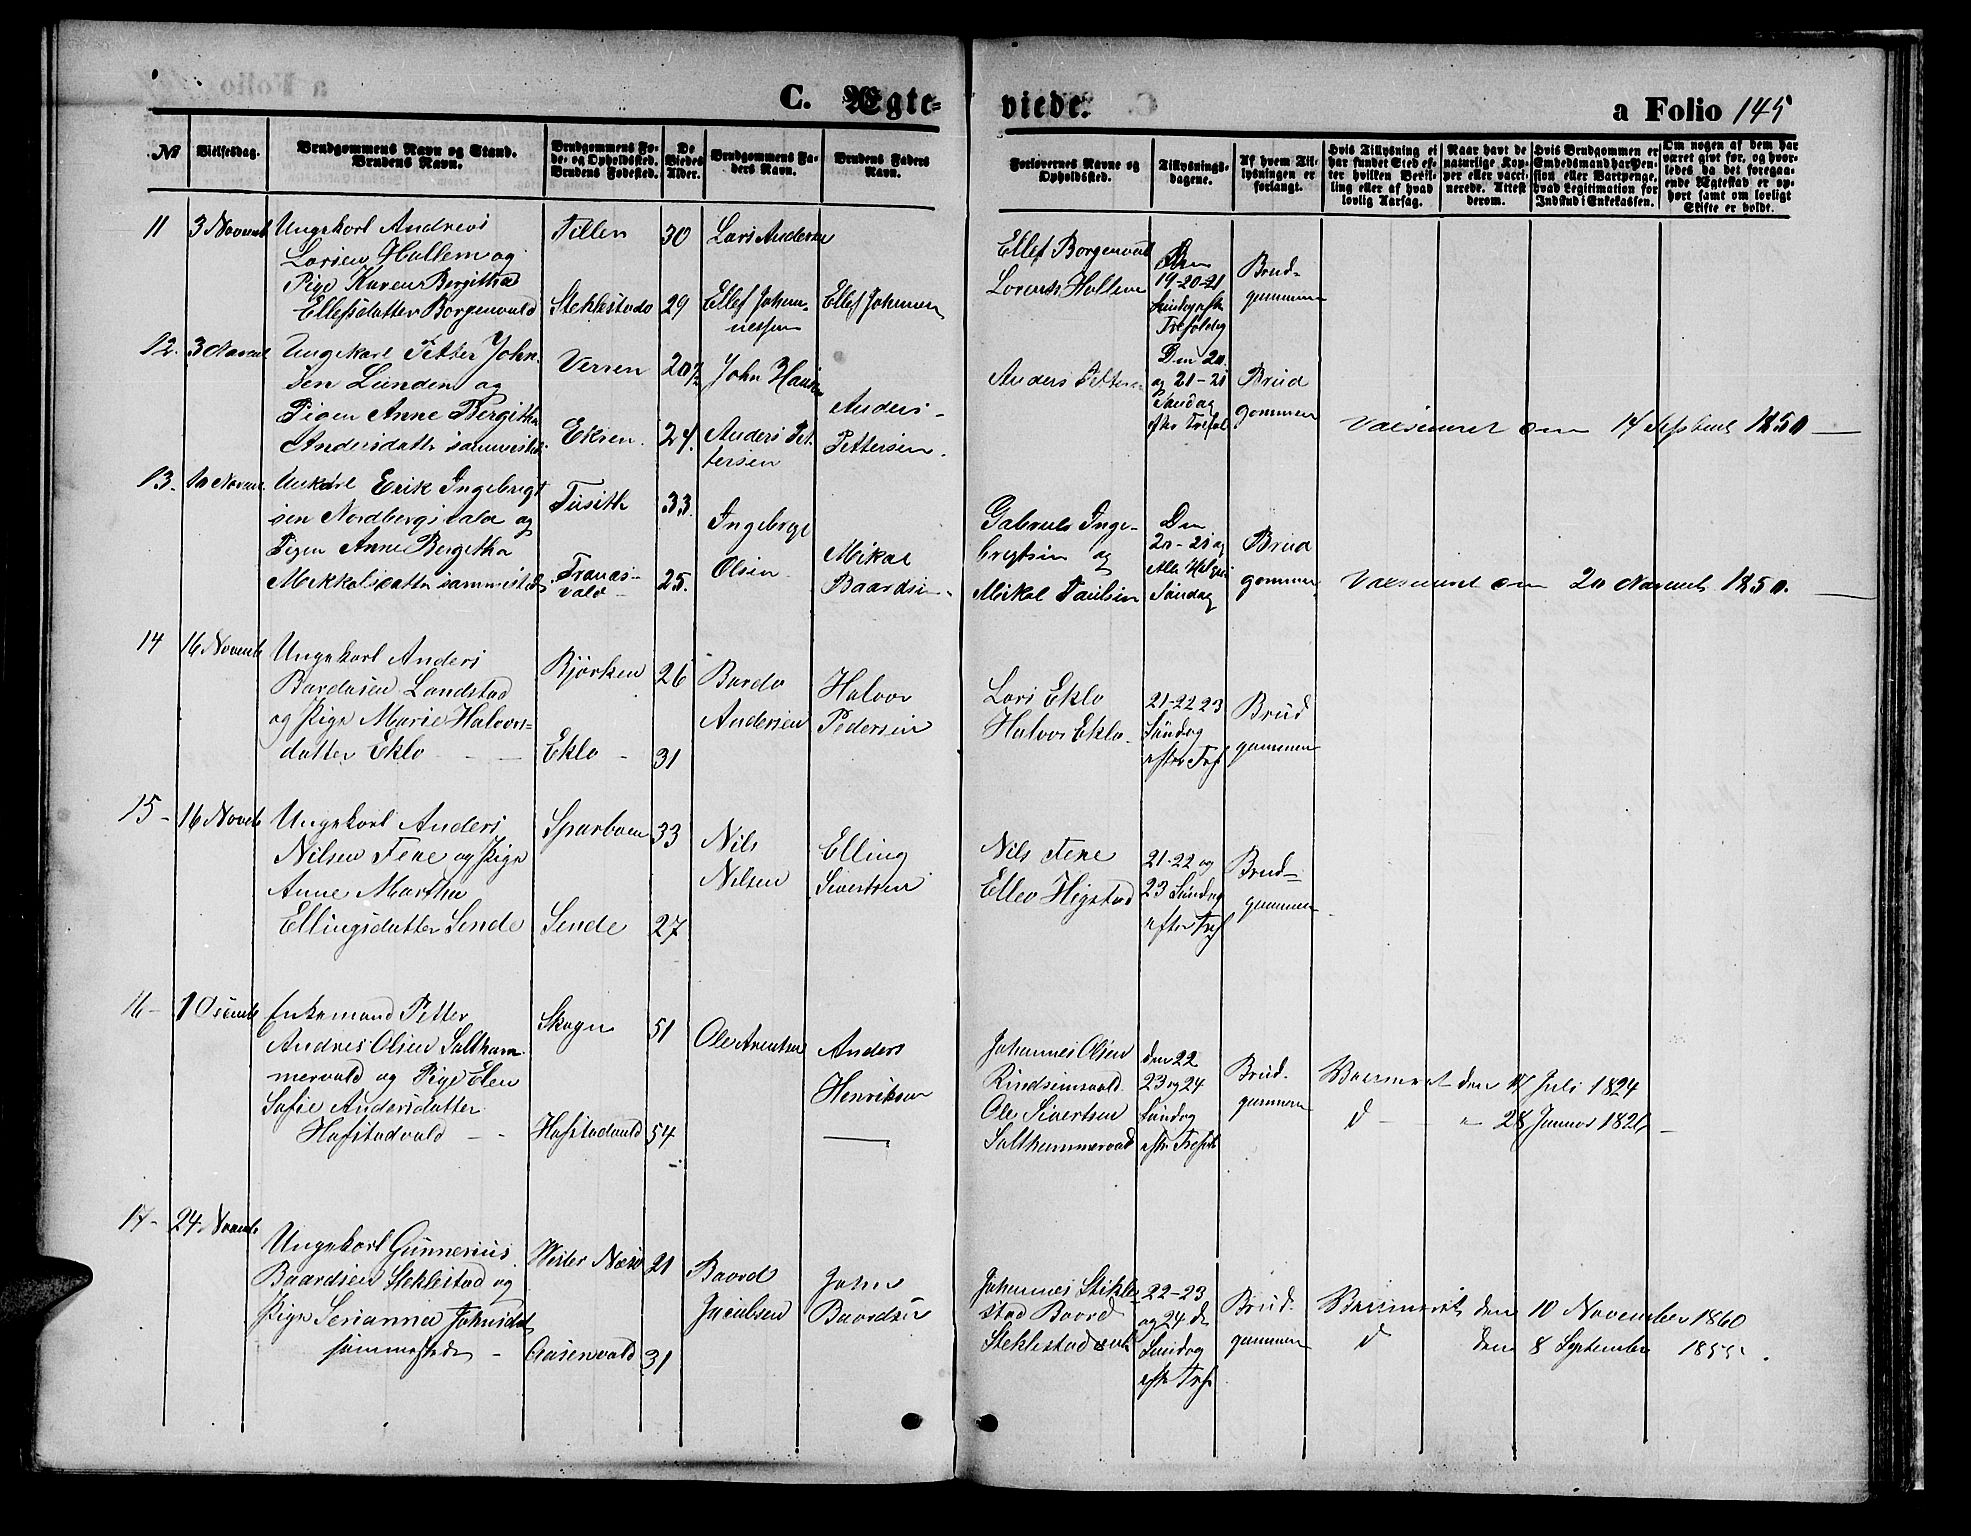 C. Ægte-
viede.
a Folio 145
No
Vielsesdag.
Brudgommens Navn og Stand.
Brudens Navn.
Brudgommens Fø-
de- og Opholdssted.
Brudens Fødested.
De
Viedes
Alder.
Brudgommens Fa-
ders Navn.
Brudens Faders
Navn.
Forlovernes Navne og
Opholdssted.
Tillysnings-
dagene.
Af hvem Til-
lysningen er
forlangt.
Hvis Tillysning ei
har fundet Sted ef-
ter hvilken Bevil-
ling eller af hvad
lovlig Aarsag.
Naar havt de
naturlige Kop-
per eller vacci-
nerede. Attest
derom.
Hvis Brudgommen er
Embedsmand har Pen-
sion eller Vartpenge,
hvad Legitimation for
Indskud i Enkekassen.
Om nogen af dem har
været givt før, og hvor-
ledes da det foregaa-
ende Ægteskab er op-
hørt samt om lovligt
Skifte er holdt.
11
3 Novemb
Ungekarl Andreas
Larsen Hallem og
Pige Karen Bergitha
Ellefsdatter Borgenvald
Tiller
Steklestads
30
29
Lars Andersen
Ellef Johan-
nessen
Ellef Johansen
Ellef Borgenvald
Lorents Hallem
Den
19-20-21
Søndag eft
Trefoldig
Brud-
gommen
12.
3 Novemb
Ungekarl Petter John-
sen Lunden og
Pigen Anne Bergitha
Andersdatter sammested
Verren
Eksen.
20½
24.
John Hans
Anders Pet-
tersen
Anders
Pettersen.
Anders Petters
Den 20
og 21-21
Søndag
efter Trefol
Brud
gommen
Vacsineret den 14 September 1850
13.
10 Novemb
Unkarl Erik Ingebrigt
sen Nordbergsvald og
Pigen Anne Bergetha
Mekkalsdatter sammested
Tusith
Tranas-
vald
33
25.
Ingebrigt
Olsen
Mikal
Baardsen
Gabriels Inge-
brigtsen og
Mikal Paulsen
Den
20-21 og
Alle Helgen
Søndag
Brud
gommen
Vacsineret den 20 Novemb 1850.
14
16 Novemb
Ungekarl Anders
Bardosen Landstad
og Pige Marie Halvors-
datter Eklo
Bjørken
Eklo
26
31
Bardo
Andersen
Halvor
Pedersen
Lars Eklo
Halvor Eklo
21-22 23
Søndag
efter Tref
Brud
gommen
15
16 Novemb
Ungekarl Anders
Nilsen Tene og Pige
Anne Martha
Ellingsdatter Sende
Sparboen
Sende
33
27
Nils
Nilsen
Elling
Sivertsen
Nils Tene
Ellev Higstad
21-22 og
23 Søndag
efter Tref
Brud-
gommen
16
1 Desemb
Enkemand Petter
Andreas Olsen Saltham-
mervald og Pige Elen
Sofie Andersdatter
Hafstadvald
Skogn
Hafstadvald
51
54
Ole Arentsen
Anders
Henriksen
Johannes Olsen
Rindsemvald
Ole Sivertsen
Salthammervald
den 22
23 og 24
Søndag
eftr Trefold
Brud-
gommen
Vaccineret den 17 Juli 1824
d " 28 Januar 1821
17
24 Novemb
Ungekarl Gunnerius
Baardsen Steklestad og
Pige Serianna Johnsdat
sammesteds
Vester Næss
Aasenvald
21
31
Baard
Jacobsen
John
Baardsen
Johannes Stikle-
stad Baard
Steklestad
22-23
og 24 de
Søndag
eft Tref
Brud-
gommen
Vaccineret den 10 November 1860
d den 8 September 1855